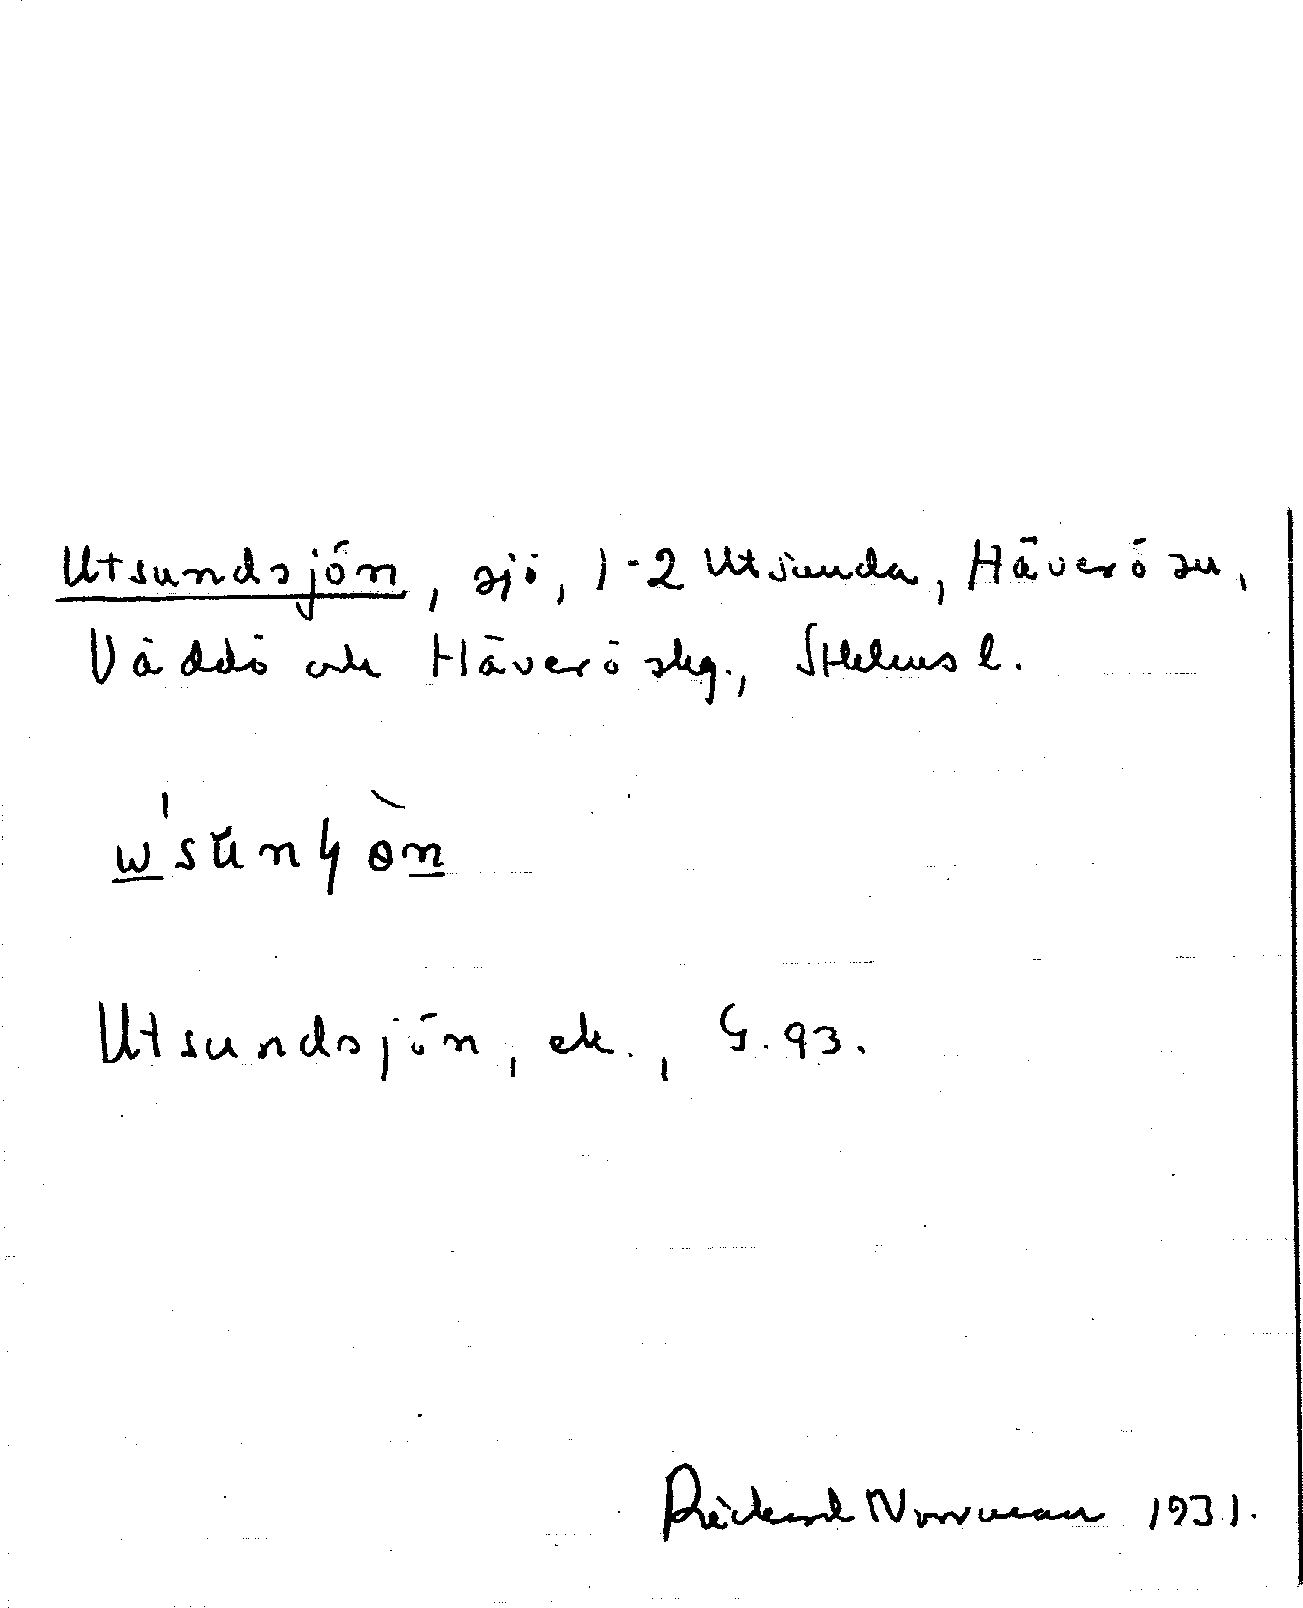 Utsundsjön, sjö, 1-2 Utsunda, Häverö sn,
Väddö och Häverö skg., Sthlms l.
Utsundsjön, ek., G. 93.
Rickard Norrman 1931.